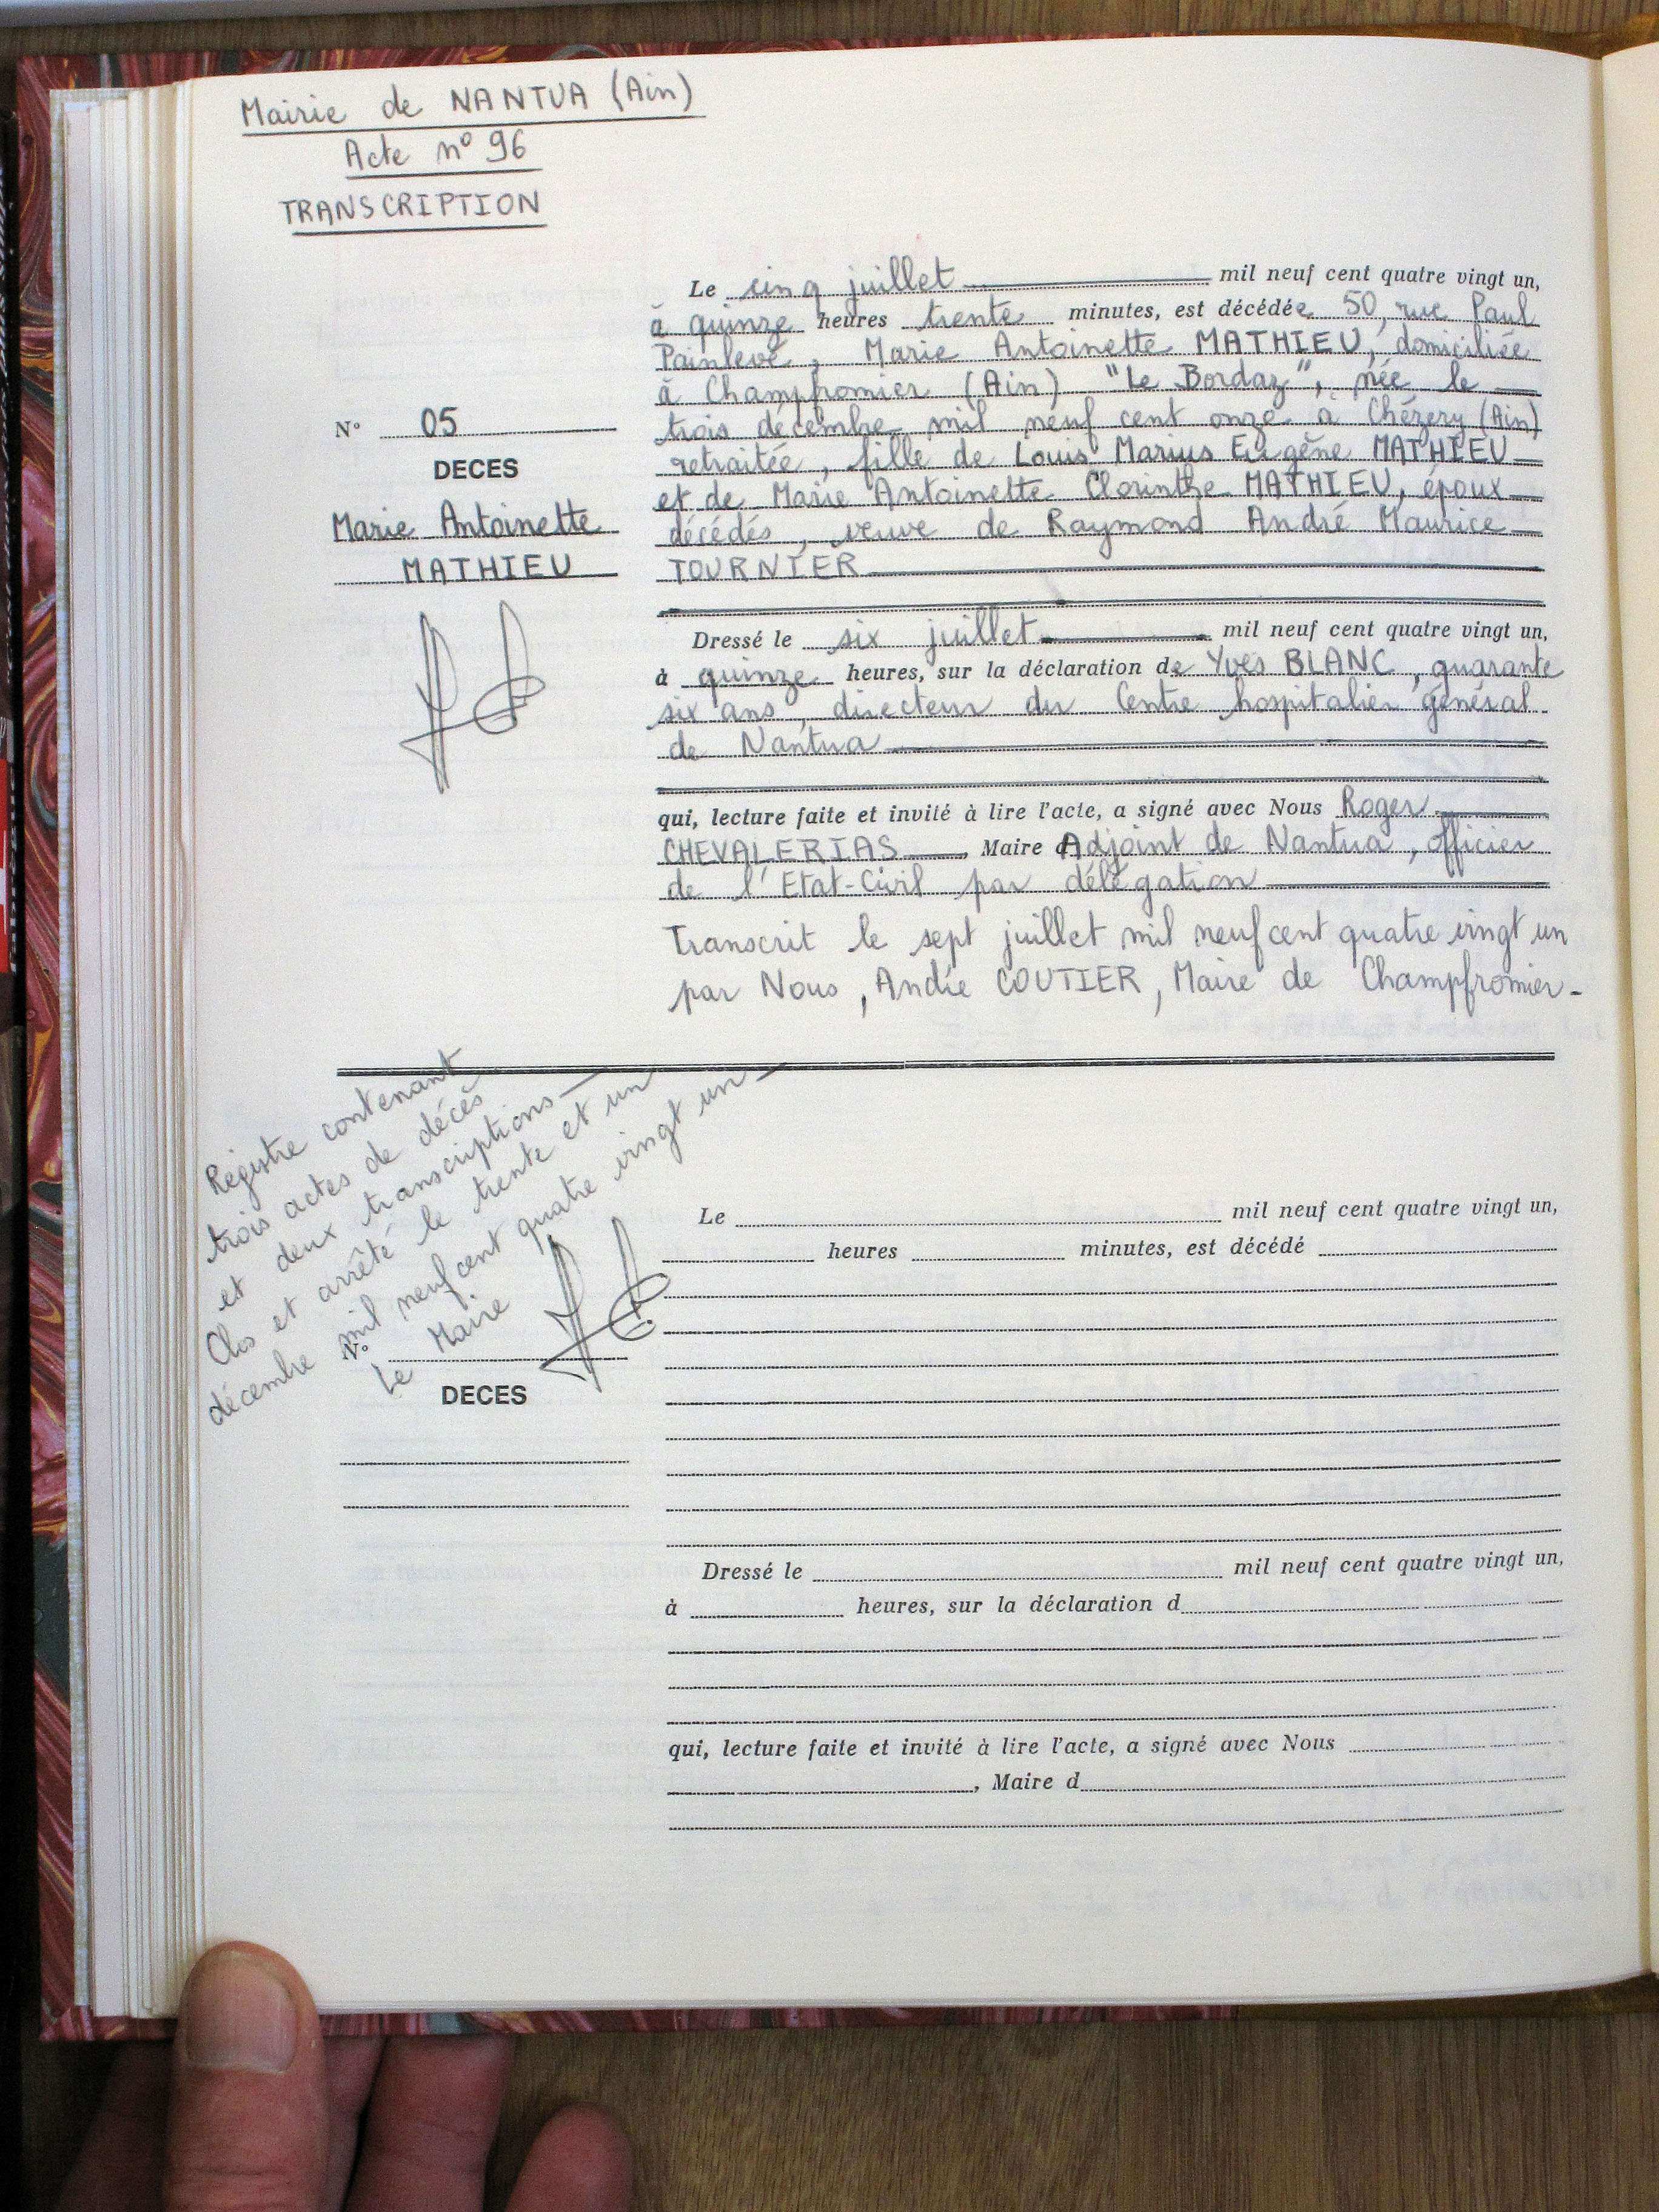 Mairie de NANTUA (Ain)
Acte n° 96
TRANSCRIPTION
Le cinq juillet mil neuf cent quatre vingt un,
à quinze heures trente minutes, est décédée 50, rue Paul
Painlevé, Marie Antoinette MATHIEU, domiciliée
à Champfromier (Ain) "Le Bordaz", née le
trois décembre mil neuf cent onze à Chézery (Ain)
retraitée, fille de Louis Marius Eugène MATHIEU
et de Marie Antoinette Clorinthe MATHIEU, époux
décédés, veuve de Raymond André Maurice
TOURNIER
N° 05
DECES
Marie Antoinette
MATHIEU
Dressé le six juillet mil neuf cent quatre vingt un,
à quinze heures, sur la déclaration de Yves BLANC, quarante
six ans, directeur du Centre hospitalier général
de Nantua
qui, lecture faite et invité à lire l'acte, a signé avec Nous Roger
CHEVALERIAS, Maire Adjoint de Nantua, officier
de l'Etat-Civil par délégation
Transcrit le sept juillet mil neuf cent quatre vingt un
par Nous, André COUTIER, Maire de Champfromier-
Registre contenant
trois actes de décès
et deux transcriptions
Clos et arrêté le trente et un
décembre mil neuf cent quatre vingt un
Le Maire
Le mil neuf cent quatre vingt un,
heures minutes, est décédé
N°
DECES
Dressé le mil neuf cent quatre vingt un,
à heures, sur la déclaration d
qui, lecture faite et invité à lire l'acte, a signé avec Nous
, Maire d